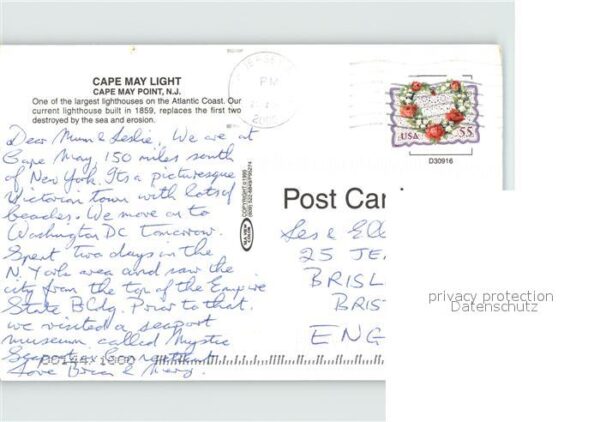 CAPE MAY LIGHT
CAPE MAY POINT, N.J.
One of the largest lighthouses on the Atlantic Coast. Our
current lighthouse built in 1859, replaces the first two
destroyed by the sea and erosion.
Dear Mum & Leslie, We are at
Cape May, 150 miles south
of New York. Its a picturesque
Victorian town with lots of
beaches. We move on to
Washington DC tomorrow.
Spent two days in the
N. York area and saw the
city from the top of the Empire
State Bldg. Prior to that
we visited a seaport
museum called Mystic
Seaport in Connecticut
Love Brian & Mary.
JERSEY
PM
USA 55
D30916
COPYRIGHT ©1995
Post Car
Les & Ell
25 JE
BRISL
BRIS
ENG
privacy protection
Datenschutz